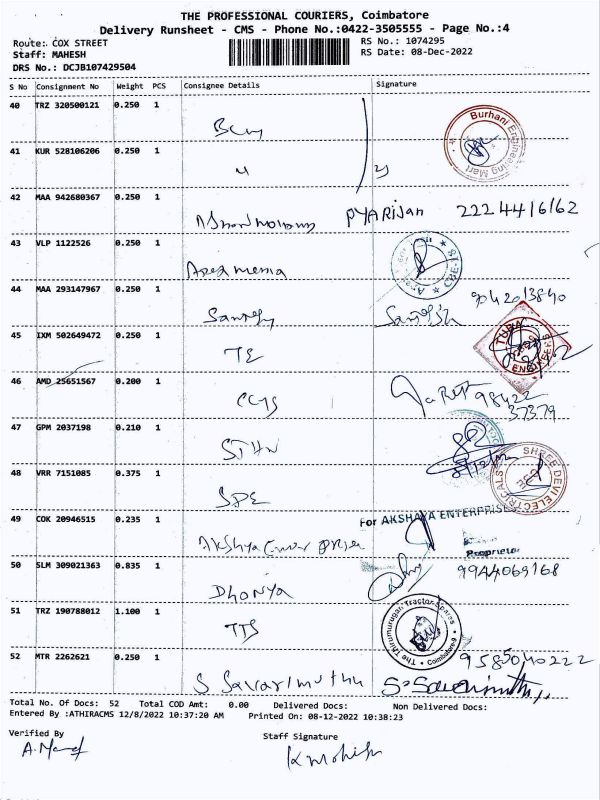 THE PROFESSIONAL COURIERS, Coimbatore
Delivery Runsheet - CMS - Phone No.:0422-3505555 - Page No.:4
Route: COX STREET
RS No.: 1074295
Staff: MAHESH
RS Date: 08-Dec-2022
DRS No.: DCJB107429504
S No Consignment No Weight PCS Consignee Details Signature
40 TRZ 320500121 0.250 1
Burhani Engineering Mart
41 KUR 528106206 0.250 1
42 MAA 942680367 0.250 1
PYARIJAN 2224416162
43 VLP 1122526 0.250 1
44 MAA 293147967 0.250 1
9042013840
45 IXM 502649472 0.250 1
TE
TUBA ENGINEERS
46 AMD 25651567 0.200 1
98422
37379
47 GPM 2037198 0.210 1
48 VRR 7151085 0.375 1
SPE
SHREE DEVI ELECTRICALS
49 COK 20946515 0.235 1
For AKSHAYA ENTERPRISE
Proprietor
50 SLM 309021363 0.835 1
DHONYA
9944069168
51 TRZ 190788012 1.100 1
TTS
The Thirumurugan Tractor Spares
Coimbatore-9
52 MTR 2262621 0.250 1
S Savarimuthu
9585040222
Total No. Of Docs: 52 Total COD Amt: 0.00 Delivered Docs: Non Delivered Docs:
Entered By :ATHIRACMS 12/8/2022 10:37:20 AM Printed On: 08-12-2022 10:38:23
Verified By
Staff Signature